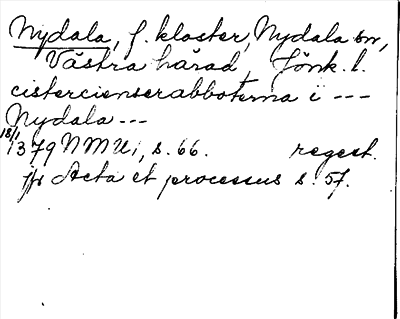 Nydala, f. kloster, Nydala sn,
Västra härad, Jönk. l.
cistercienserabboterna i ---
Nydala ---
18/1
1379 NMU 1, s. 66. regest.
jfr Acta et processus s. 57.